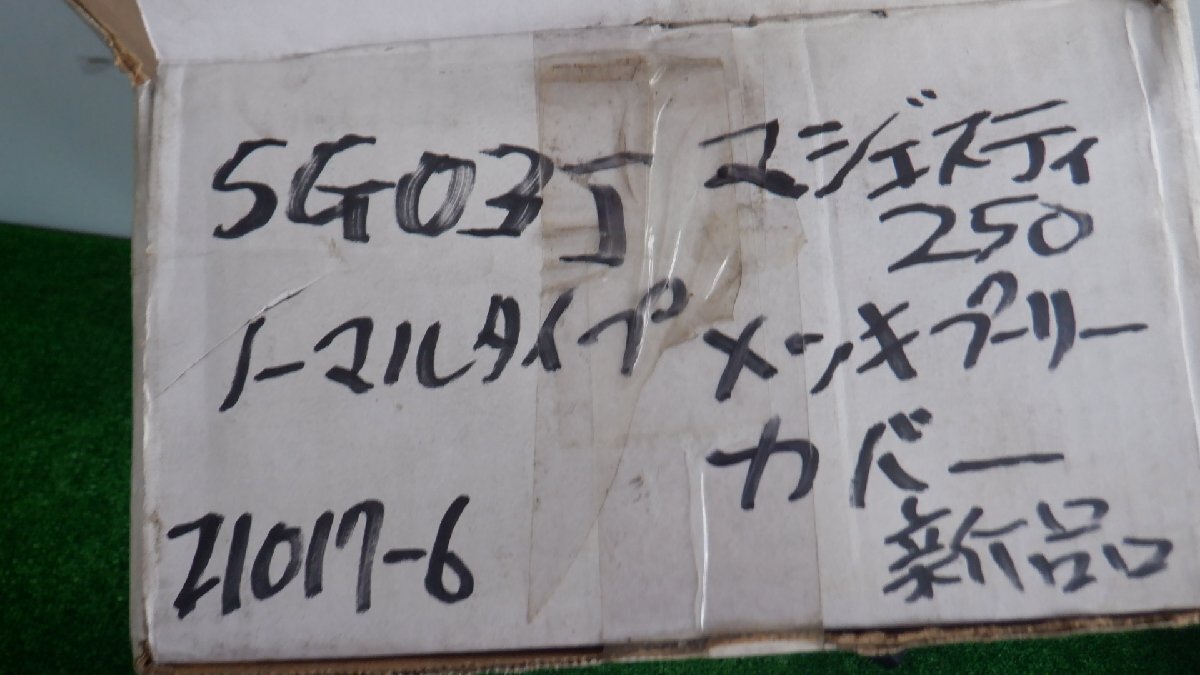 SG03J マジェスティ
250
ノーマルタイプ メンキプーリー
カバー
21017-6
新品